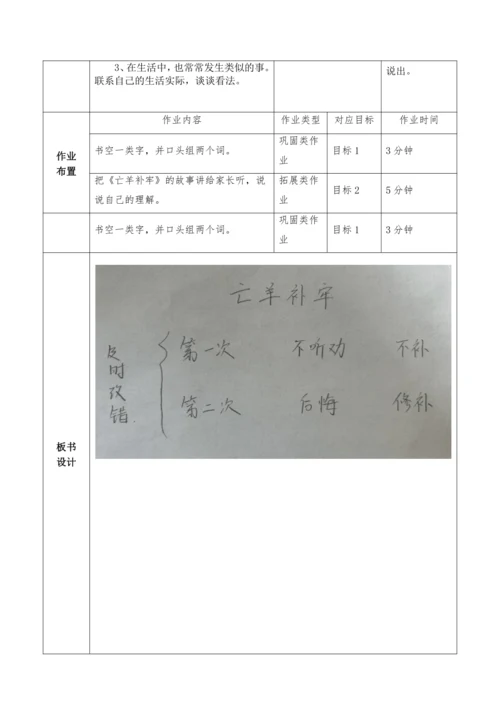 3、在生活中，也常常发生类似的事。
联系自己的生活实际，谈谈看法。
说出。
作业
布置
作业内容 作业类型 对应目标 作业时间
书空一类字，并口头组两个词。 巩固类作业 目标1 3分钟
把《亡羊补牢》的故事讲给家长听，说
说自己的理解。 拓展类作业 目标2 5分钟
书空一类字，并口头组两个词。 巩固类作业 目标1 3分钟
板书
设计
亡羊补牢
及时改错
第一次 不听劝 不补
第二次 后悔 修补